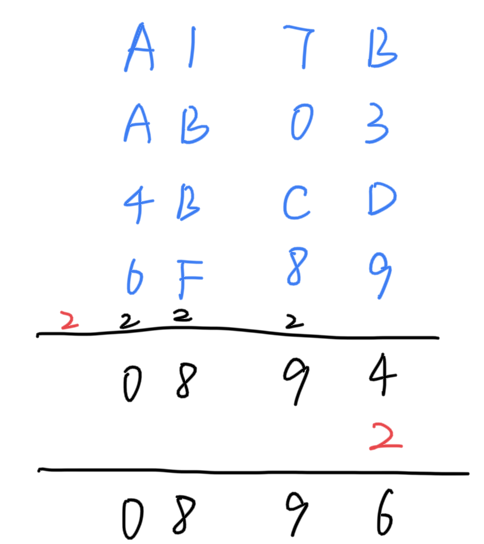 A 1 7 B
A B 0 3
4 B C D
6 F 8 9
2 2 2 2
0 8 9 4
2
0 8 9 6